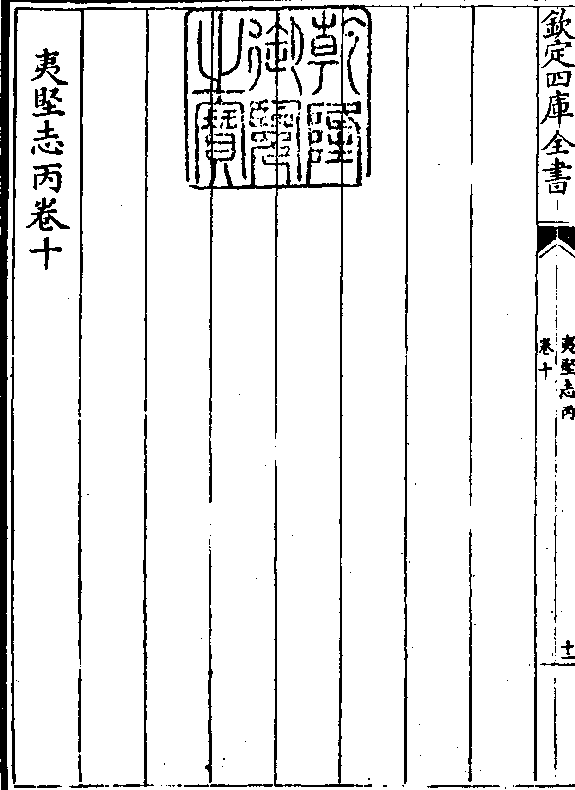 欽定四庫全書
夷堅志丙
卷十
十一
乾隆
御覽
之寶
夷堅志丙卷十